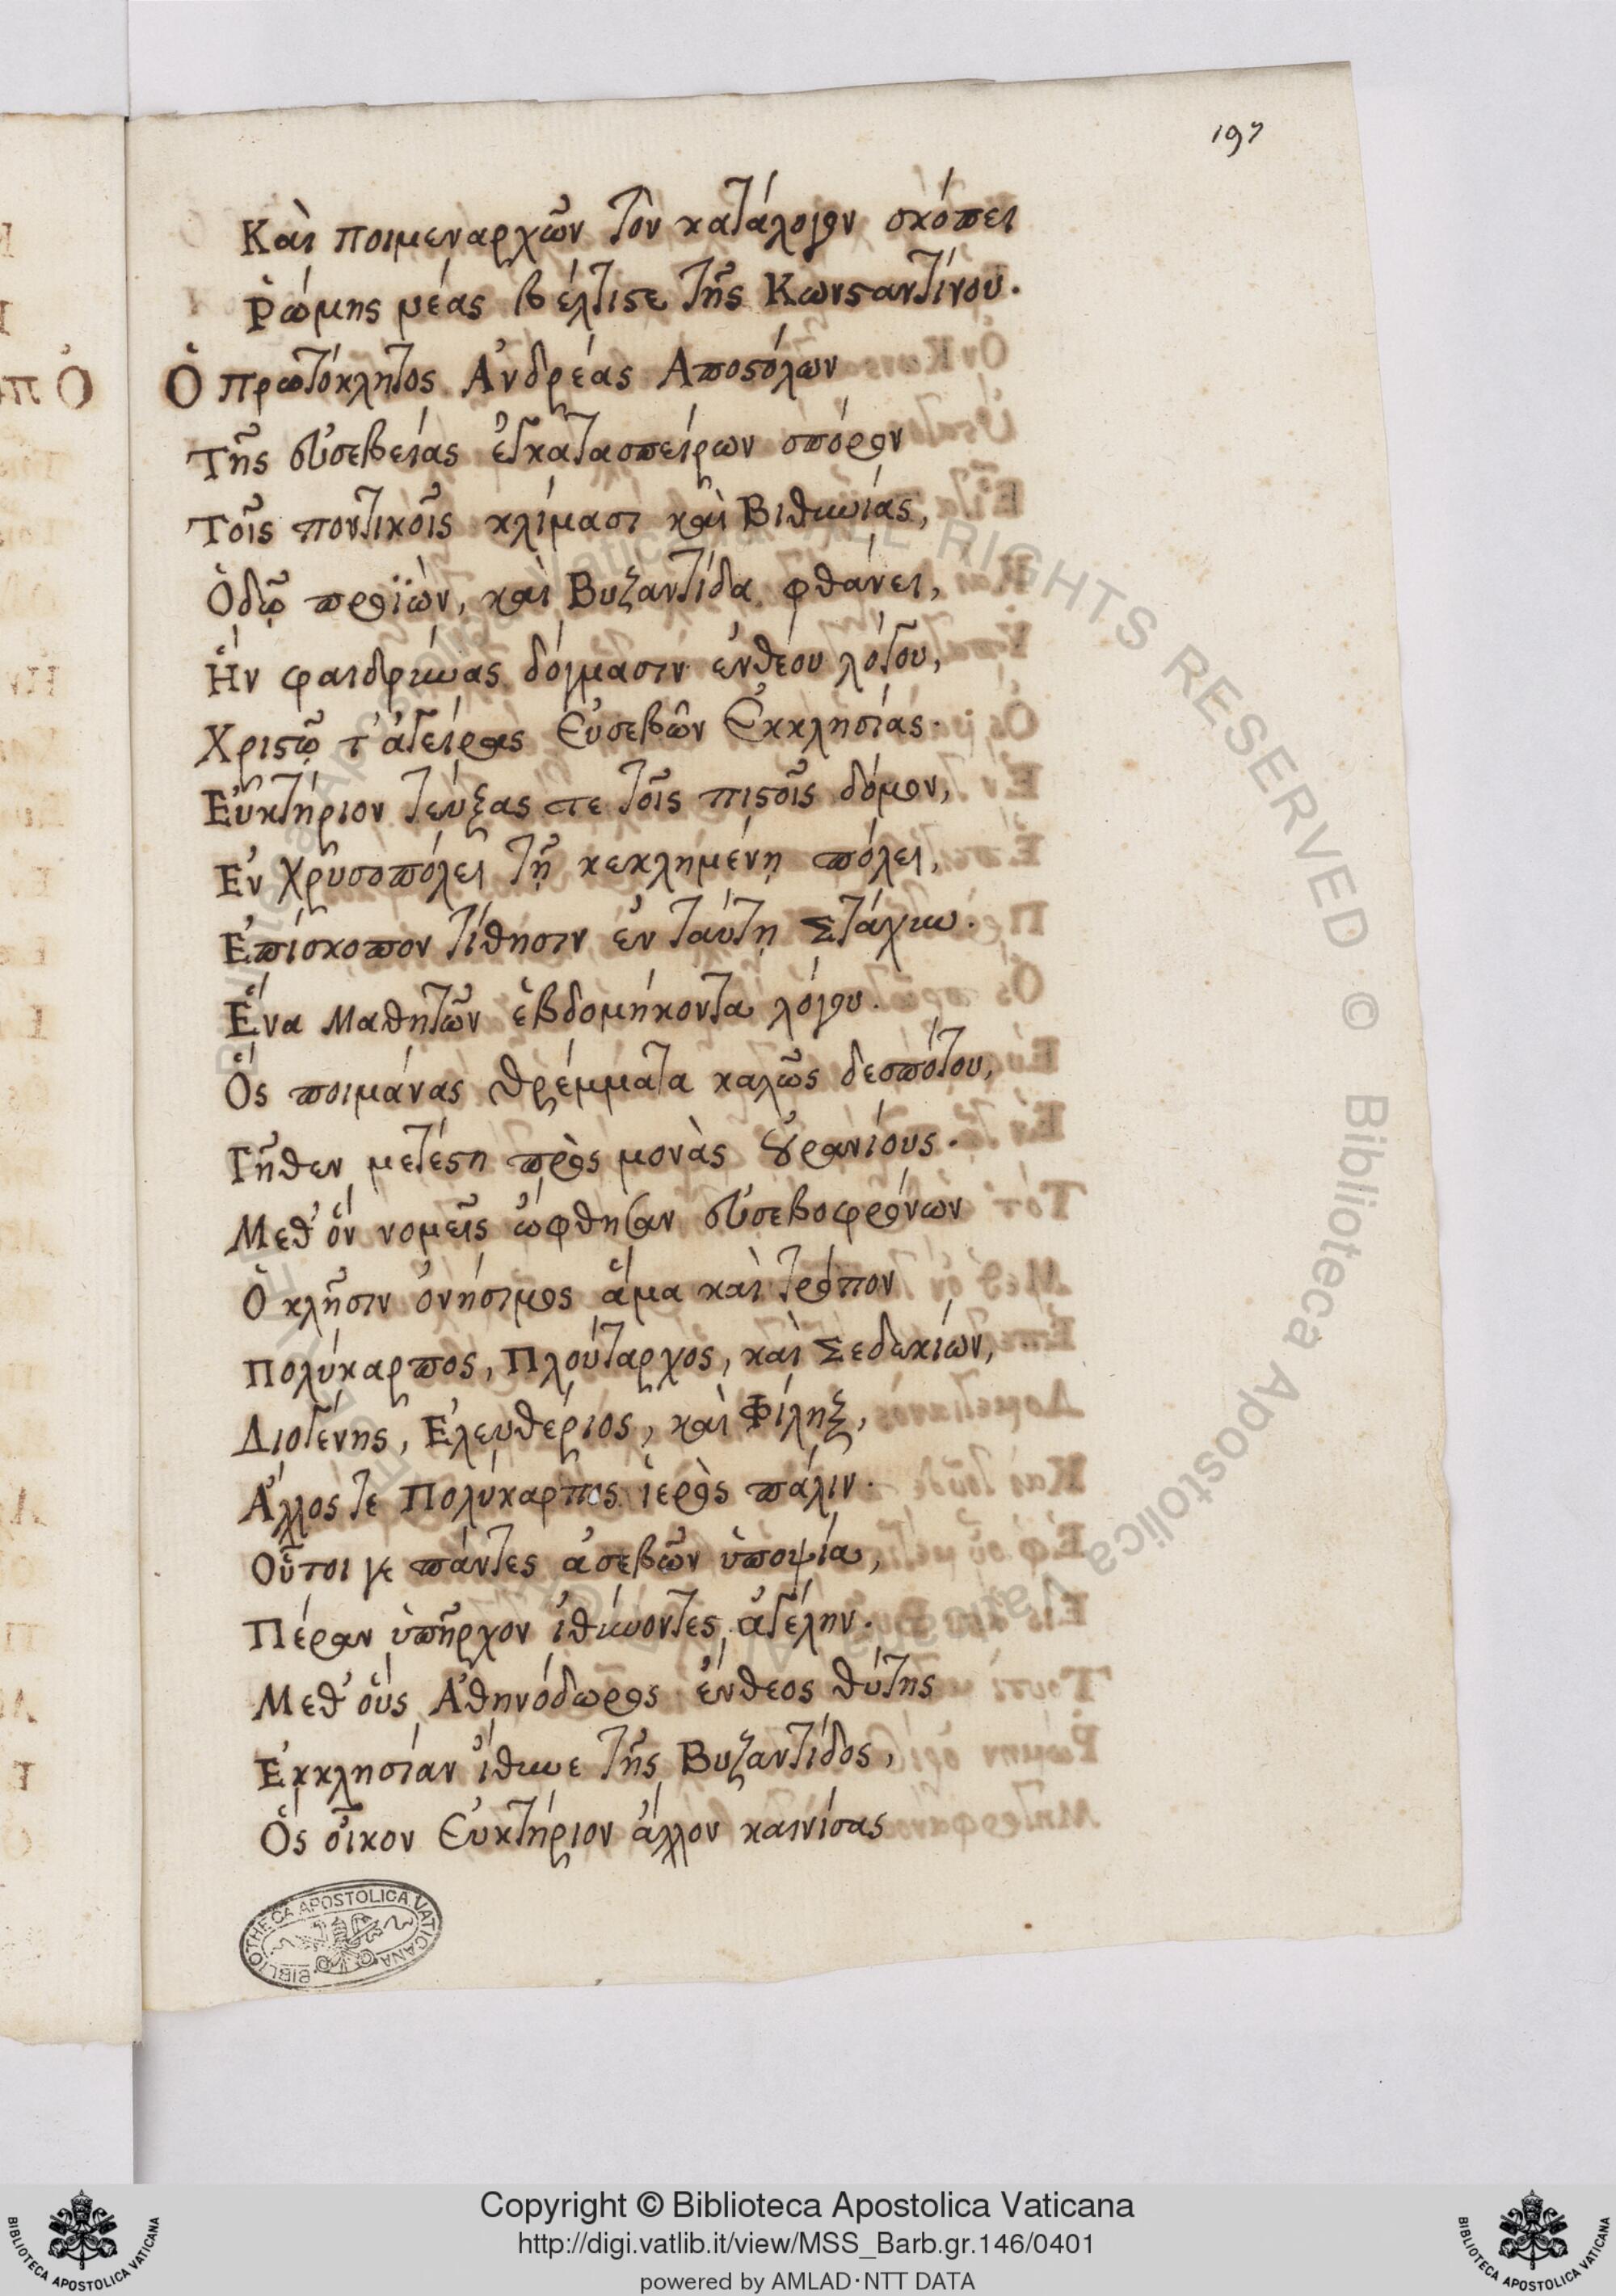 197
Καὶ ποιμεναρχῶν τὸν κατάλογον σκόπει
Ῥώμης νέας βέλτιϛε τῆς Κωνϛαντίνου.
Ὁ πρωτόκλητος Ἀνδρέας Αποϛόλων
Τῆς εὐσεβείας ἐγκατασπείρων σπόρον
Τοῖς ποντικοῖς κλίμασι καὶ Βιθυνίας,
Ὁδῷ προϊὼν, καὶ Βυζαντίδα φθάνει,
Ἣν φαιδρύνας δόγμασιν ἐνθέου λόγου,
Χριϛῷ τ' ἀγείρας Εὐσεβῶν Ἐκκλησίας.
Εὐκτήριον τεύξας τε τοῖς πιϛοῖς δόμον,
Ἐν Χρυσοπόλει τῇ κεκλημένῃ πόλει,
Ἐπίσκοπον τίθησιν ἐν ταύτῃ Στάχυν.
Ἕνα Μαθητῶν ἑβδομήκοντα λόγου.
Ὃς ποιμάνας θρέμματα καλῶς δεσπότου,
Γῆθεν μετέϛη πρὸς μονὰς ȣ̓ρανίους.
Μεθ' ὃν νομεῖς ὤφθησαν εὐσεβοφρόνων
Ὁ κλῆσιν ὀνήσιμος ἅμα καὶ τρόπον
Πολύκαρπος, Πλούταρχος, καὶ Σεδεκίων,
Διογένης, Ἐλευθέριος, καὶ Φίληξ,
Ἄλλος τε Πολύκαρπος ἱερὸς πάλιν.
Οὗτοι γε πάντες ἀσεβῶν ὑποψία,
Πέραν ὑπῆρχον ἰθύνοντες ἀγέλην.
Μεθ' οὓς Ἀθηνόδωρος ἔνθεος θύτης
Ἐκκλησίαν ἴθυνε τῆς Βυζαντίδος,
Ὃς οἶκον Εὐκτήριον ἄλλον καινίσας
BIBLIOTHECA APOSTOLICA VATICANA
Copyright © Biblioteca Apostolica Vaticana
http://digi.vatlib.it/view/MSS_Barb.gr.146/0401
powered by AMLAD·NTT DATA
BIBLIOTECA APOSTOLICA VATICANA
BIBLIOTECA APOSTOLICA VATICANA